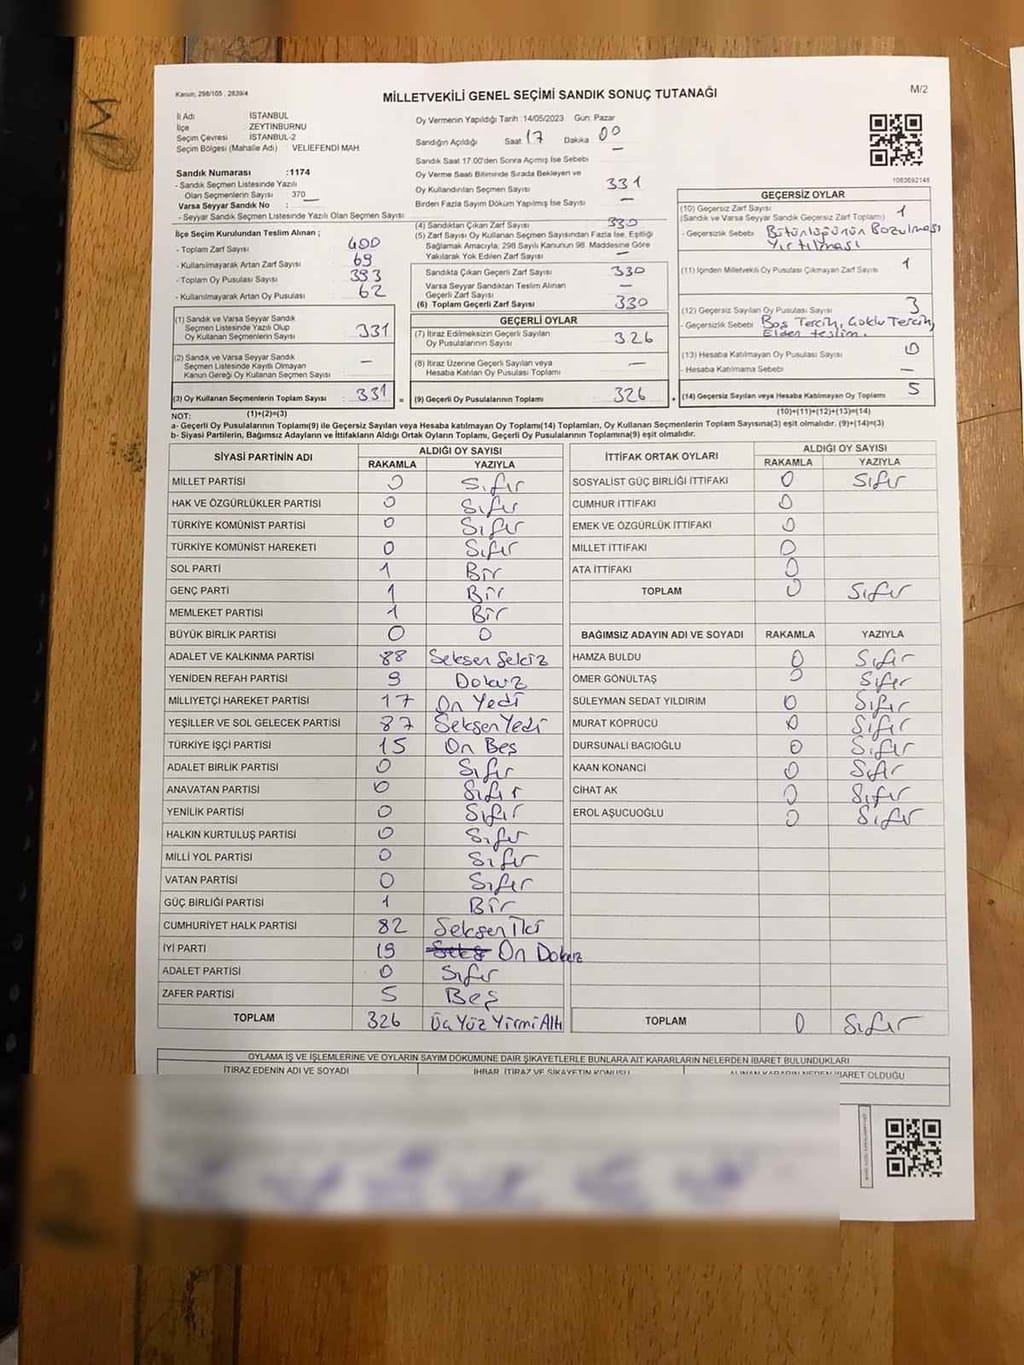 Kanun, 298/105 , 2839/4
MİLLETVEKİLİ GENEL SEÇİMİ SANDIK SONUÇ TUTANAĞI
M/2
M
İl Adı İSTANBUL
İlçe ZEYTİNBURNU
Seçim Çevresi İSTANBUL-2
Seçim Bölgesi (Mahalle Adı) VELİEFENDİ MAH.
Sandık Numarası :1174
- Sandık Seçmen Listesinde Yazılı
Olan Seçmenlerin Sayısı 370
Varsa Seyyar Sandık No : —
- Seyyar Sandık Seçmen Listesinde Yazılı Olan Seçmen Sayısı
İlçe Seçim Kurulundan Teslim Alınan ;
- Toplam Zarf Sayısı 400
- Kullanılmayarak Artan Zarf Sayısı 69
- Toplam Oy Pusulası Sayısı 393
- Kullanılmayarak Artan Oy Pusulası 62
(1) Sandık ve Varsa Seyyar Sandık
Seçmen Listesinde Yazılı Olup
Oy Kullanan Seçmenlerin Sayısı 331
(2) Sandık ve Varsa Seyyar Sandık
Seçmen Listesinde Kayıtlı Olmayan
Kanun Gereği Oy Kullanan Seçmen Sayısı —
(3) Oy Kullanan Seçmenlerin Toplam Sayısı 331 =
(1)+(2)=(3)
Oy Vermenin Yapıldığı Tarih :14/05/2023 Gün: Pazar
Sandığın Açıldığı Saat 17 Dakika 00
Sandık Saat 17:00'den Sonra Açmış İse Sebebi —
Oy Verme Saati Bitiminde Sırada Bekleyen ve
Oy Kullandırılan Seçmen Sayısı 331
Birden Fazla Sayım Döküm Yapılmış İse Sayısı —
(4) Sandıktan Çıkan Zarf Sayısı 330
(5) Zarf Sayısı Oy Kullanan Seçmen Sayısından Fazla İse, Eşitliği
Sağlamak Amacıyla, 298 Sayılı Kanunun 98. Maddesine Göre
Yakılarak Yok Edilen Zarf Sayısı —
Sandıkta Çıkan Geçerli Zarf Sayısı 330
Varsa Seyyar Sandıktan Teslim Alınan
Geçerli Zarf Sayısı —
(6) Toplam Geçerli Zarf Sayısı 330
GEÇERLİ OYLAR
(7) İtiraz Edilmeksizin Geçerli Sayılan
Oy Pusulalarının Sayısı 326
(8) İtiraz Üzerine Geçerli Sayılan veya
Hesaba Katılan Oy Pusulası Toplamı —
(9) Geçerli Oy Pusulalarının Toplamı 326 +
1083692148
GEÇERSİZ OYLAR
(10) Geçersiz Zarf Sayısı
(Sandık ve Varsa Seyyar Sandık Geçersiz Zarf Toplamı) 1
- Geçersizlik Sebebi Bütünlüğünün Bozulması
Yırtılması
(11) İçinden Milletvekili Oy Pusulası Çıkmayan Zarf Sayısı 1
(12) Geçersiz Sayılan Oy Pusulası Sayısı 3
- Geçersizlik Sebebi Boş Tercih, Çoklu Tercih,
Elden teslim.
(13) Hesaba Katılmayan Oy Pusulası Sayısı 0
- Hesaba Katılmama Sebebi —
(14) Geçersiz Sayılan veya Hesaba Katılmayan Oy Toplamı 5
(10)+(11)+(12)+(13)=(14)
NOT:
a- Geçerli Oy Pusulalarının Toplamı(9) ile Geçersiz Sayılan veya Hesaba katılmayan Oy Toplamı(14) Toplamları, Oy Kullanan Seçmenlerin Toplam Sayısına(3) eşit olmalıdır. (9)+(14)=(3)
b- Siyasi Partilerin, Bağımsız Adayların ve İttifakların Aldığı Ortak Oyların Toplamı, Geçerli Oy Pusulalarının Toplamına(9) eşit olmalıdır.
SİYASİ PARTİNİN ADI ALDIĞI OY SAYISI
RAKAMLA YAZIYLA
MİLLET PARTİSİ 0 Sıfır
HAK VE ÖZGÜRLÜKLER PARTİSİ 0 Sıfır
TÜRKİYE KOMÜNİST PARTİSİ 0 Sıfır
TÜRKİYE KOMÜNİST HAREKETİ 0 Sıfır
SOL PARTİ 1 Bir
GENÇ PARTİ 1 Bir
MEMLEKET PARTİSİ 1 Bir
BÜYÜK BİRLİK PARTİSİ 0 0
ADALET VE KALKINMA PARTİSİ 88 Seksen Sekiz
YENİDEN REFAH PARTİSİ 9 Dokuz
MİLLİYETÇİ HAREKET PARTİSİ 17 On Yedi
YEŞİLLER VE SOL GELECEK PARTİSİ 87 Seksen Yedi
TÜRKİYE İŞÇİ PARTİSİ 15 On Beş
ADALET BİRLİK PARTİSİ 0 Sıfır
ANAVATAN PARTİSİ 0 Sıfır
YENİLİK PARTİSİ 0 Sıfır
HALKIN KURTULUŞ PARTİSİ 0 Sıfır
MİLLİ YOL PARTİSİ 0 Sıfır
VATAN PARTİSİ 0 Sıfır
GÜÇ BİRLİĞİ PARTİSİ 1 Bir
CUMHURİYET HALK PARTİSİ 82 Seksen İki
İYİ PARTİ 19 On Dokuz
ADALET PARTİSİ 0 Sıfır
ZAFER PARTİSİ 5 Beş
TOPLAM 326 Üç Yüz Yirmi Altı
İTTİFAK ORTAK OYLARI ALDIĞI OY SAYISI
RAKAMLA YAZIYLA
SOSYALİST GÜÇ BİRLİĞİ İTTİFAKI 0 Sıfır
CUMHUR İTTİFAKI 0
EMEK VE ÖZGÜRLÜK İTTİFAKI 0
MİLLET İTTİFAKI 0
ATA İTTİFAKI 0
TOPLAM 0 Sıfır
BAĞIMSIZ ADAYIN ADI VE SOYADI RAKAMLA YAZIYLA
HAMZA BULDU 0 Sıfır
ÖMER GÖNÜLTAŞ 0 Sıfır
SÜLEYMAN SEDAT YILDIRIM 0 Sıfır
MURAT KÖPRÜCÜ 0 Sıfır
DURSUNALİ BACIOĞLU 0 Sıfır
KAAN KONANCİ 0 Sıfır
CİHAT AK 0 Sıfır
EROL AŞUCUOĞLU 0 Sıfır
TOPLAM 0 Sıfır
OYLAMA İŞ VE İŞLEMLERİNE VE OYLARIN SAYIM DÖKÜMÜNE DAİR ŞİKAYETLERLE BUNLARA AİT KARARLARIN NELERDEN İBARET BULUNDUKLARI
İTİRAZ EDENİN ADI VE SOYADI İHBAR, İTİRAZ VE ŞİKAYETİN KONUSU ALINAN KARARIN NEDEN İBARET OLDUĞU